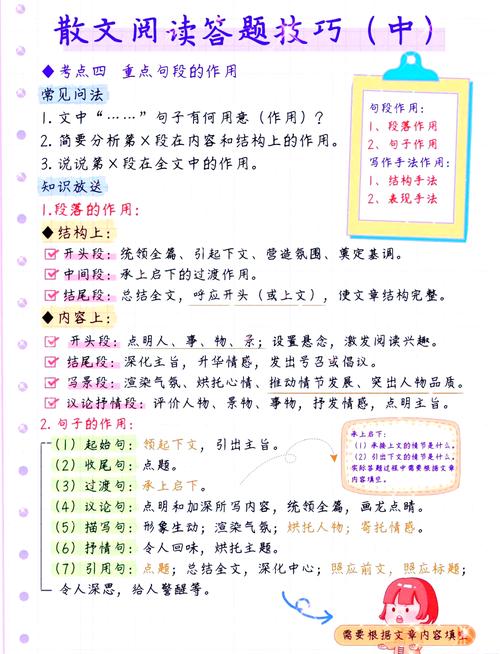 散文阅读答题技巧（中）
◆考点四 重点句段的作用
常见问法
1.文中“……”句子有何用意（作用）？
2.简要分析第×段在内容和结构上的作用。
3.说说第×段在全文中的作用。
句段作用：
1、段落作用
2、句子作用
写作手法作用：
1、结构手法
2、表现手法
知识放送
1.段落的作用：
◆结构上：
开头段：统领全篇、引起下文、营造氛围、奠定基调。
中间段：承上启下的过渡作用。
结尾段：总结全文，呼应开头（或上文），使文章结构完整。
◆内容上：
开头段：点明人、事、物、景；设置悬念，激发阅读兴趣。
结尾段：深化主旨，升华情感，发出号召或倡议。
写景段：渲染气氛、烘托心情、推动情节发展、突出人物品质。
议论抒情段：评价人物、景物、事物，抒发情感，点明主旨。
2.句子的作用：
（1）起始句：领起下文，引出主旨。
（2）收尾句：点题。
（3）过渡句：承上启下。
（4）议论句：点明和加深所写内容，统领全篇，画龙点睛。
（5）描写句：形象生动；渲染气氛；烘托人物；寄托情感。
（6）抒情句：令人回味，烘托主题。
（7）引用句：点题；总结全文，深化中心；照应前文，照应标题；
令人深思，给人警醒等。
承上启下：
（1）承接上文的情节是什么。
（2）引出下文的情节是什么。
实际答题过程中需要根据文章
内容填空。
需要根据文章内容填